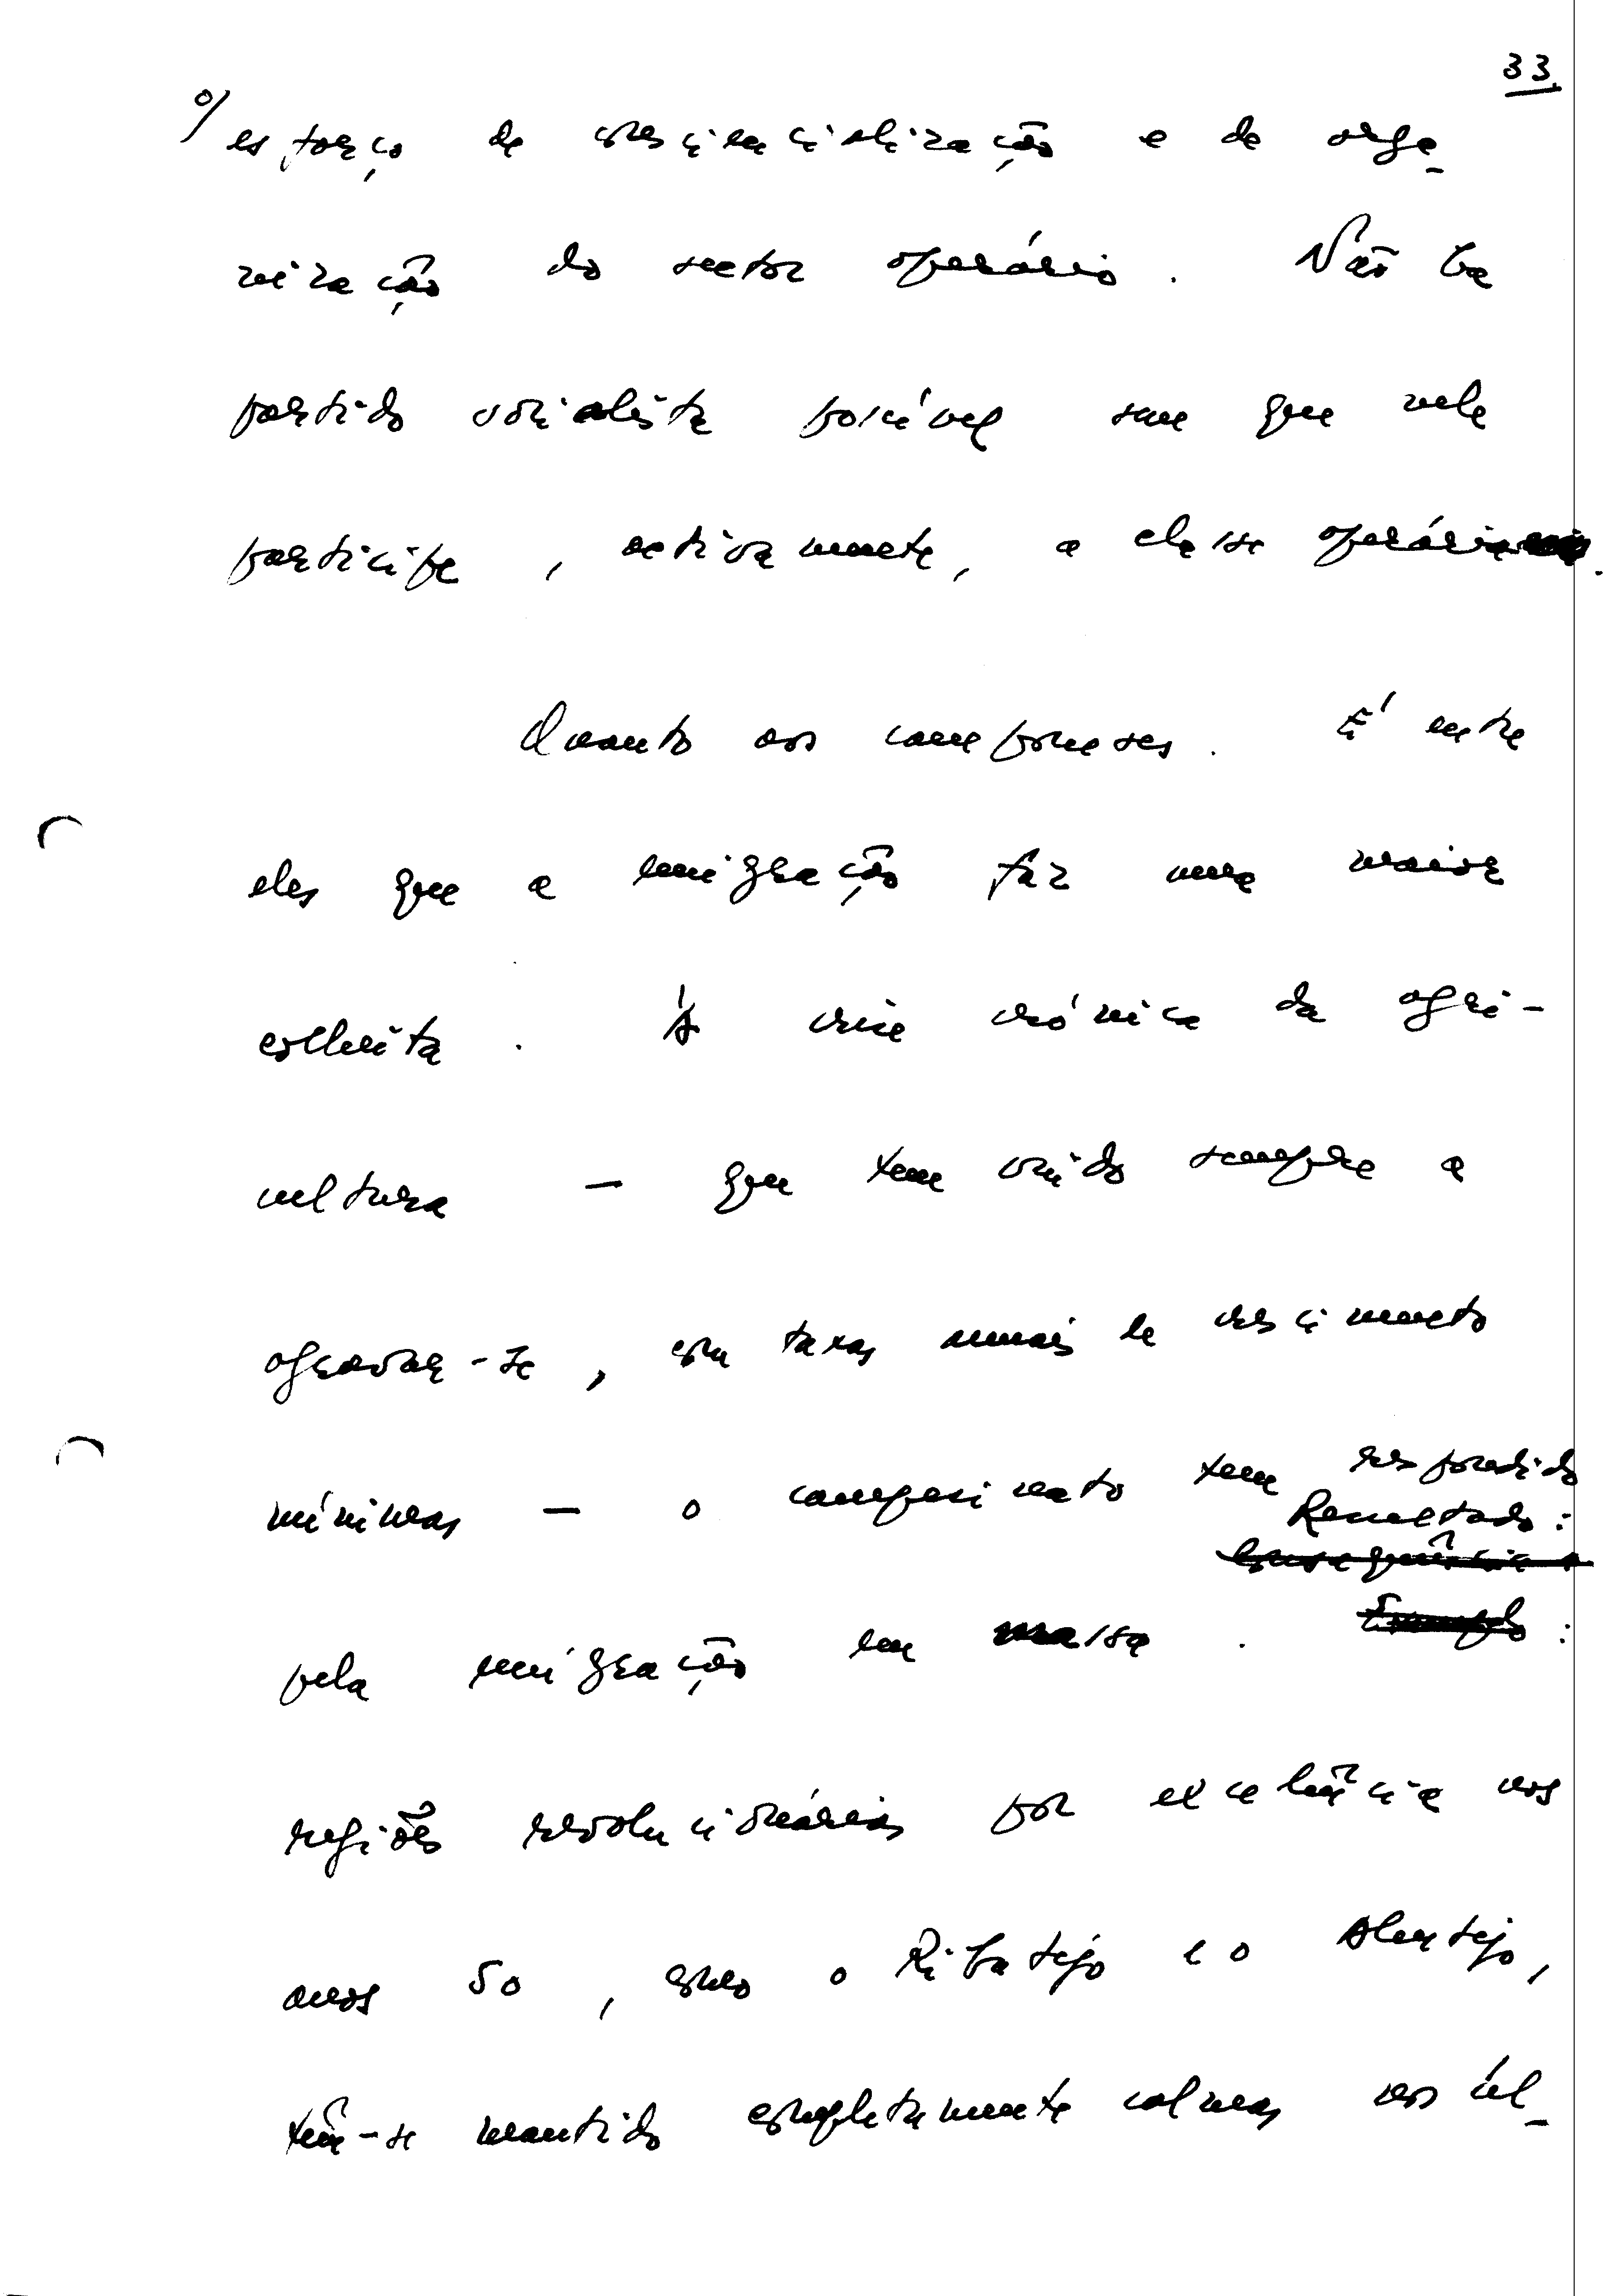 33.
o/ esforço de consciencialização e de orga-
nização do sector operário. Não há
partido socialista possível sem que nele
participe, activamente, a classe operária.
Quanto aos camponeses. É entre
eles que a emigração faz uma maior
colheita. À crise crónica da agri-
cultura — que tem vindo sempre a
agravar-se, com taxas anuais de crescimento
mínimas — o campesinato tem respondido
Resultado:
consequência
pela emigração em massa. Exemplo:
regiões revolucionárias por excelência nos
anos 50, como o Ribatejo e o Alentejo,
têm-se mantido completamente calmas nos úl-